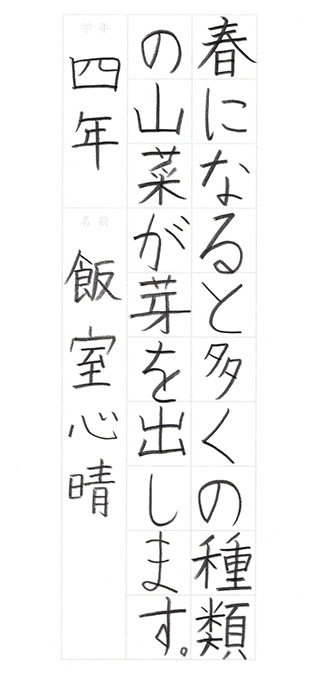 春になると多くの種類
の山菜が芽を出します。
学年
四年
名前
飯室心晴